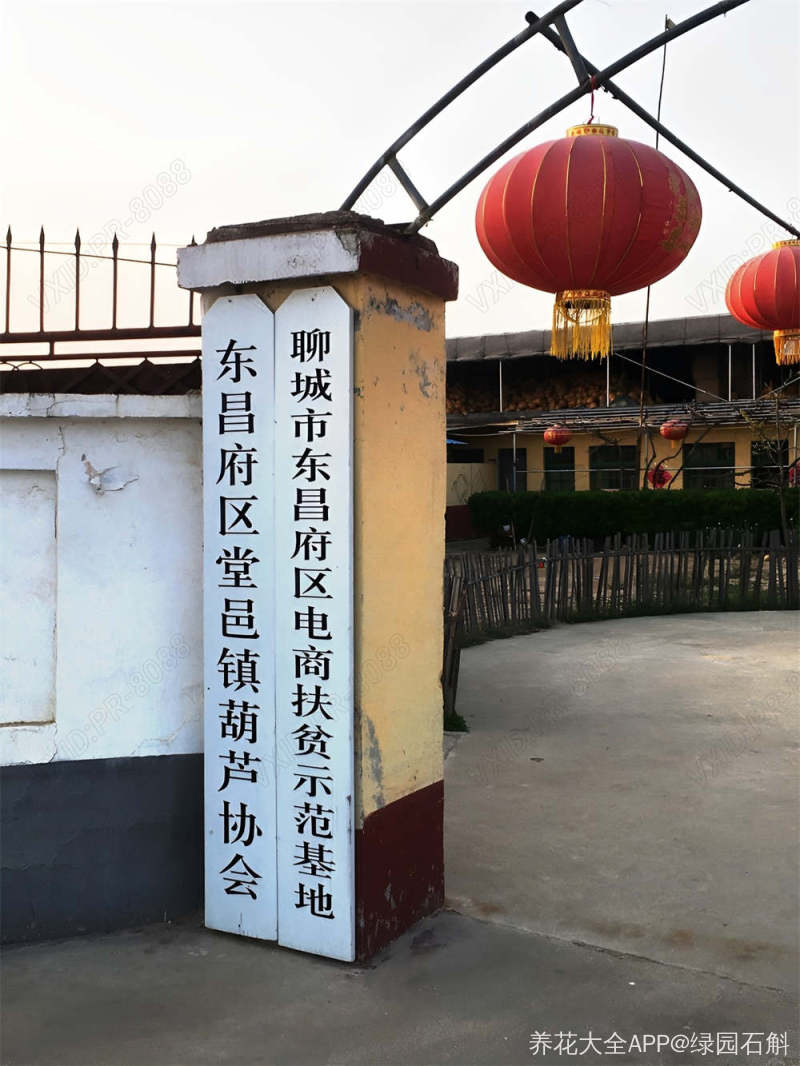 聊城市东昌府区电商扶贫示范基地
东昌府区堂邑镇葫芦协会
VXID:PR-8088
养花大全APP@绿园石斛